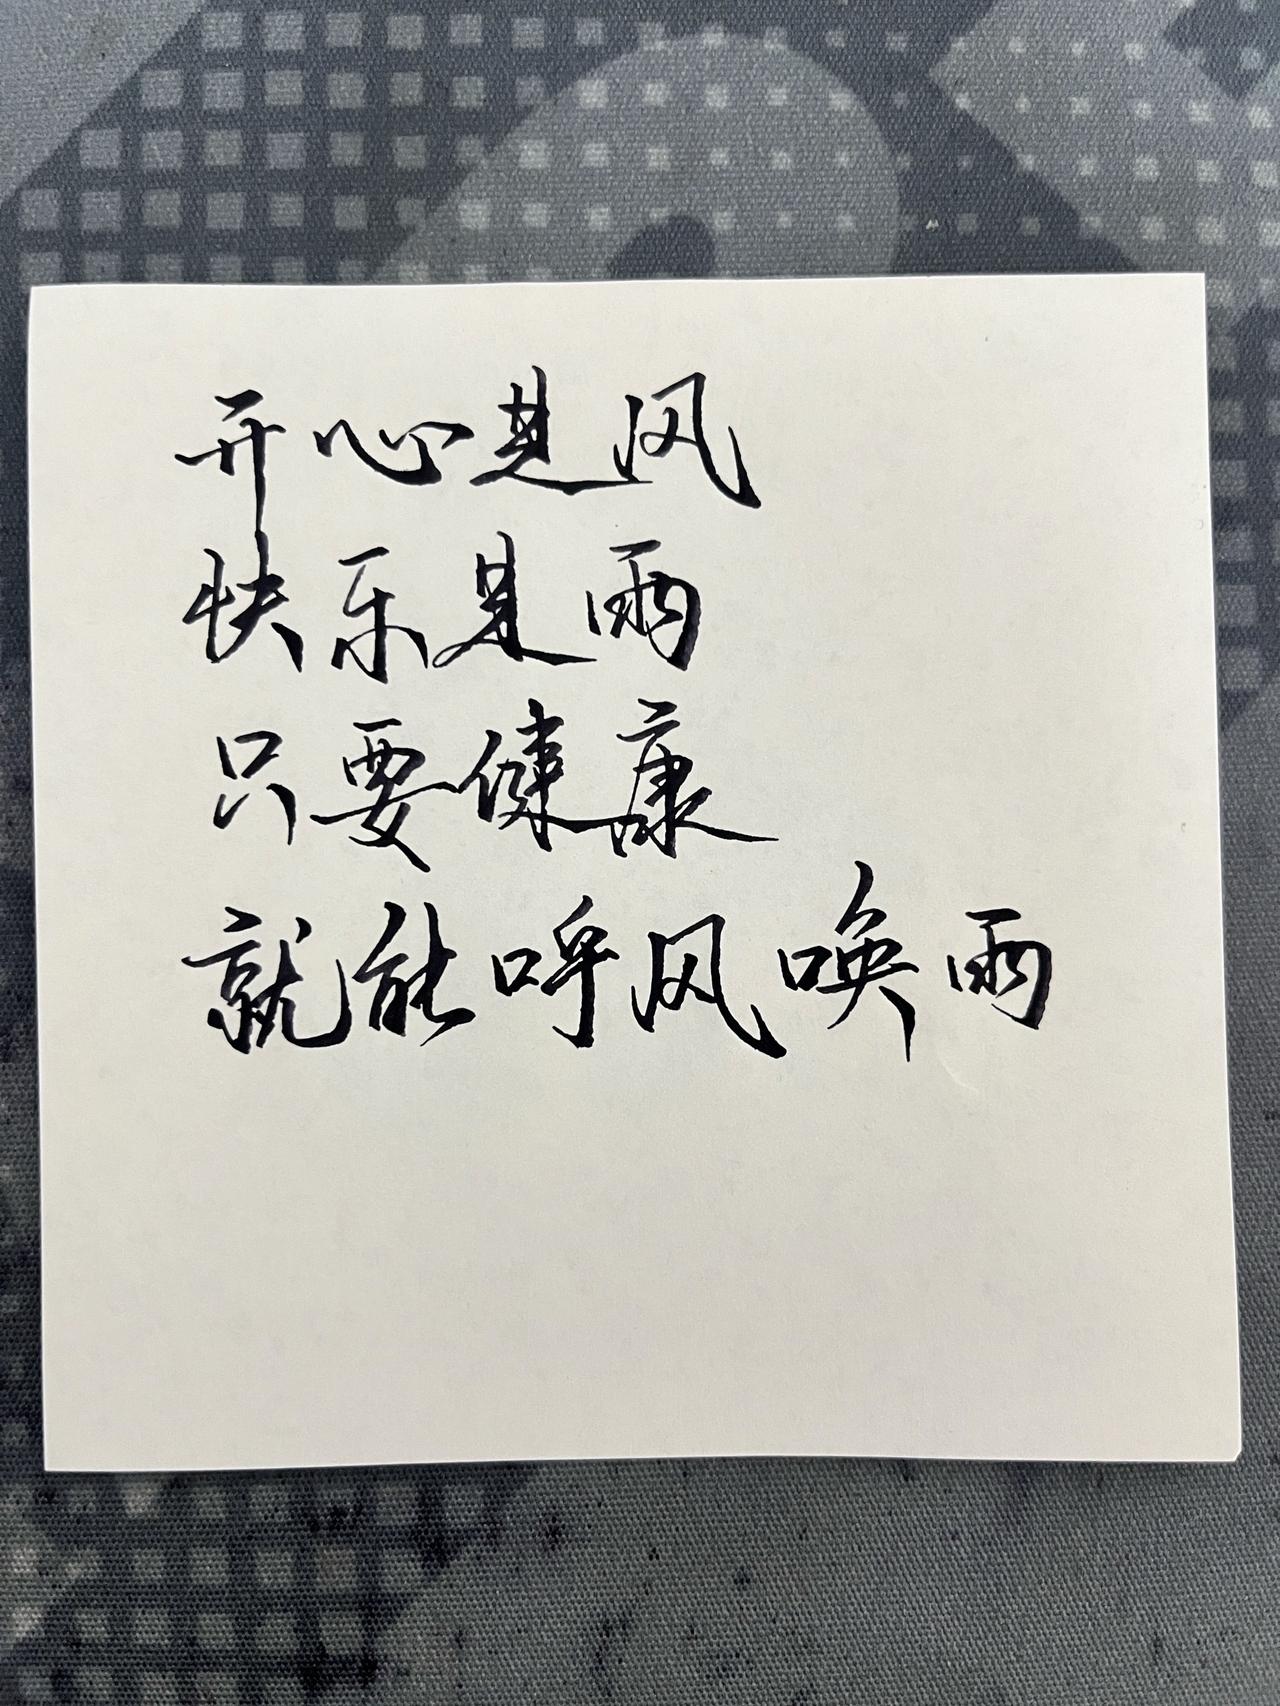 开心是风
快乐是雨
只要健康
就能呼风唤雨